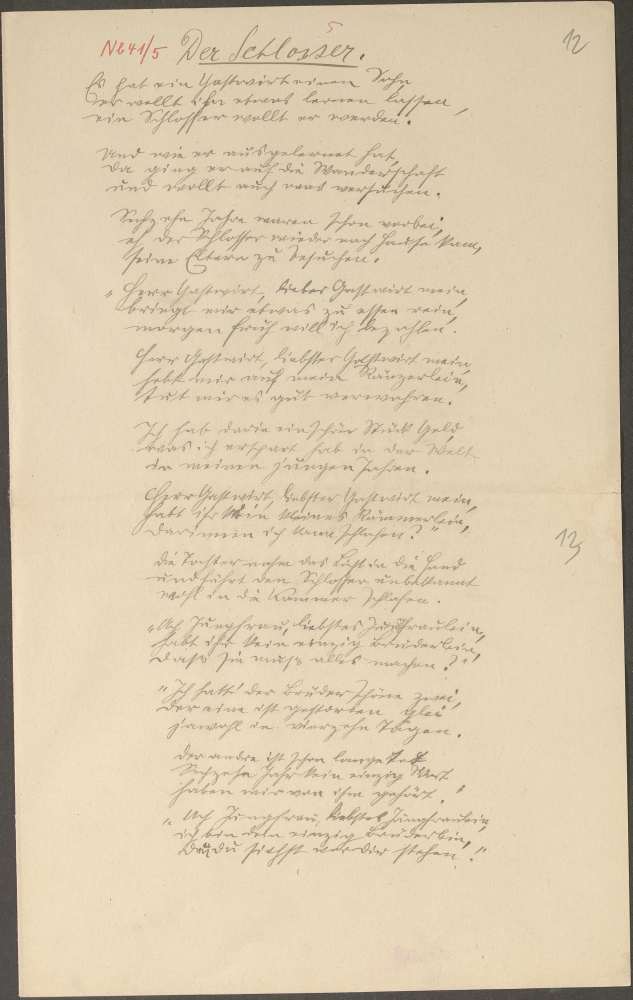 5
N641/5 Der Schlosser.
12
Es hat ein Gastwirt einen Sohn,
er wollt ihn etwas lernen lassen,
ein Schlosser wollt er werden.
Und wie er ausgelernet hat,
da ging er auf die Wanderschaft
und wollt auch was versuchen.
Sechzehn Jahre waren schon vorbei,
eh der Schlosser wieder nach Hause kam,
seine Eltern zu besuchen.
"Herr Gastwirt, lieber Gastwirt mein,
bringt mir etwas zu essen rein,
morgen früh will ich bezahlen.
Herr Gastwirt, liebster Gastwirt mein,
hebt mir auf mein Ränzerlein,
tut mir es gut verwahren.
Ich hab darin ein schön Stück Geld,
was ich erspart hab in der Welt
in meinen jungen Jahren.
Herr Gastwirt, liebster Gastwirt mein,
habt ihr kein kleines Kämmerlein,
darinnen ich kann schlafen?"
Die Tochter nahm das Licht in die Hand
und führt den Schlosser unbekannt
wohl in die Kammer schlafen.
"Ach Jungfrau, liebstes Jungfräulein,
habt ihr kein einzig Brüderlein,
dass sie muss alles machen?"
"Ich hatt' der Brüder schöne zwei,
der eine ist gestorben glei
jawohl in vierzehn Tagen.
Der andre ist schon lange tot
Sechzehn Jahr kein einzig Wort
haben wir von ihm gehört."
"Ach Jungfrau, liebstes Jungfräulein,
ich bin dein einzig Brüderlein,
du siehst vor dir stehen!"
12